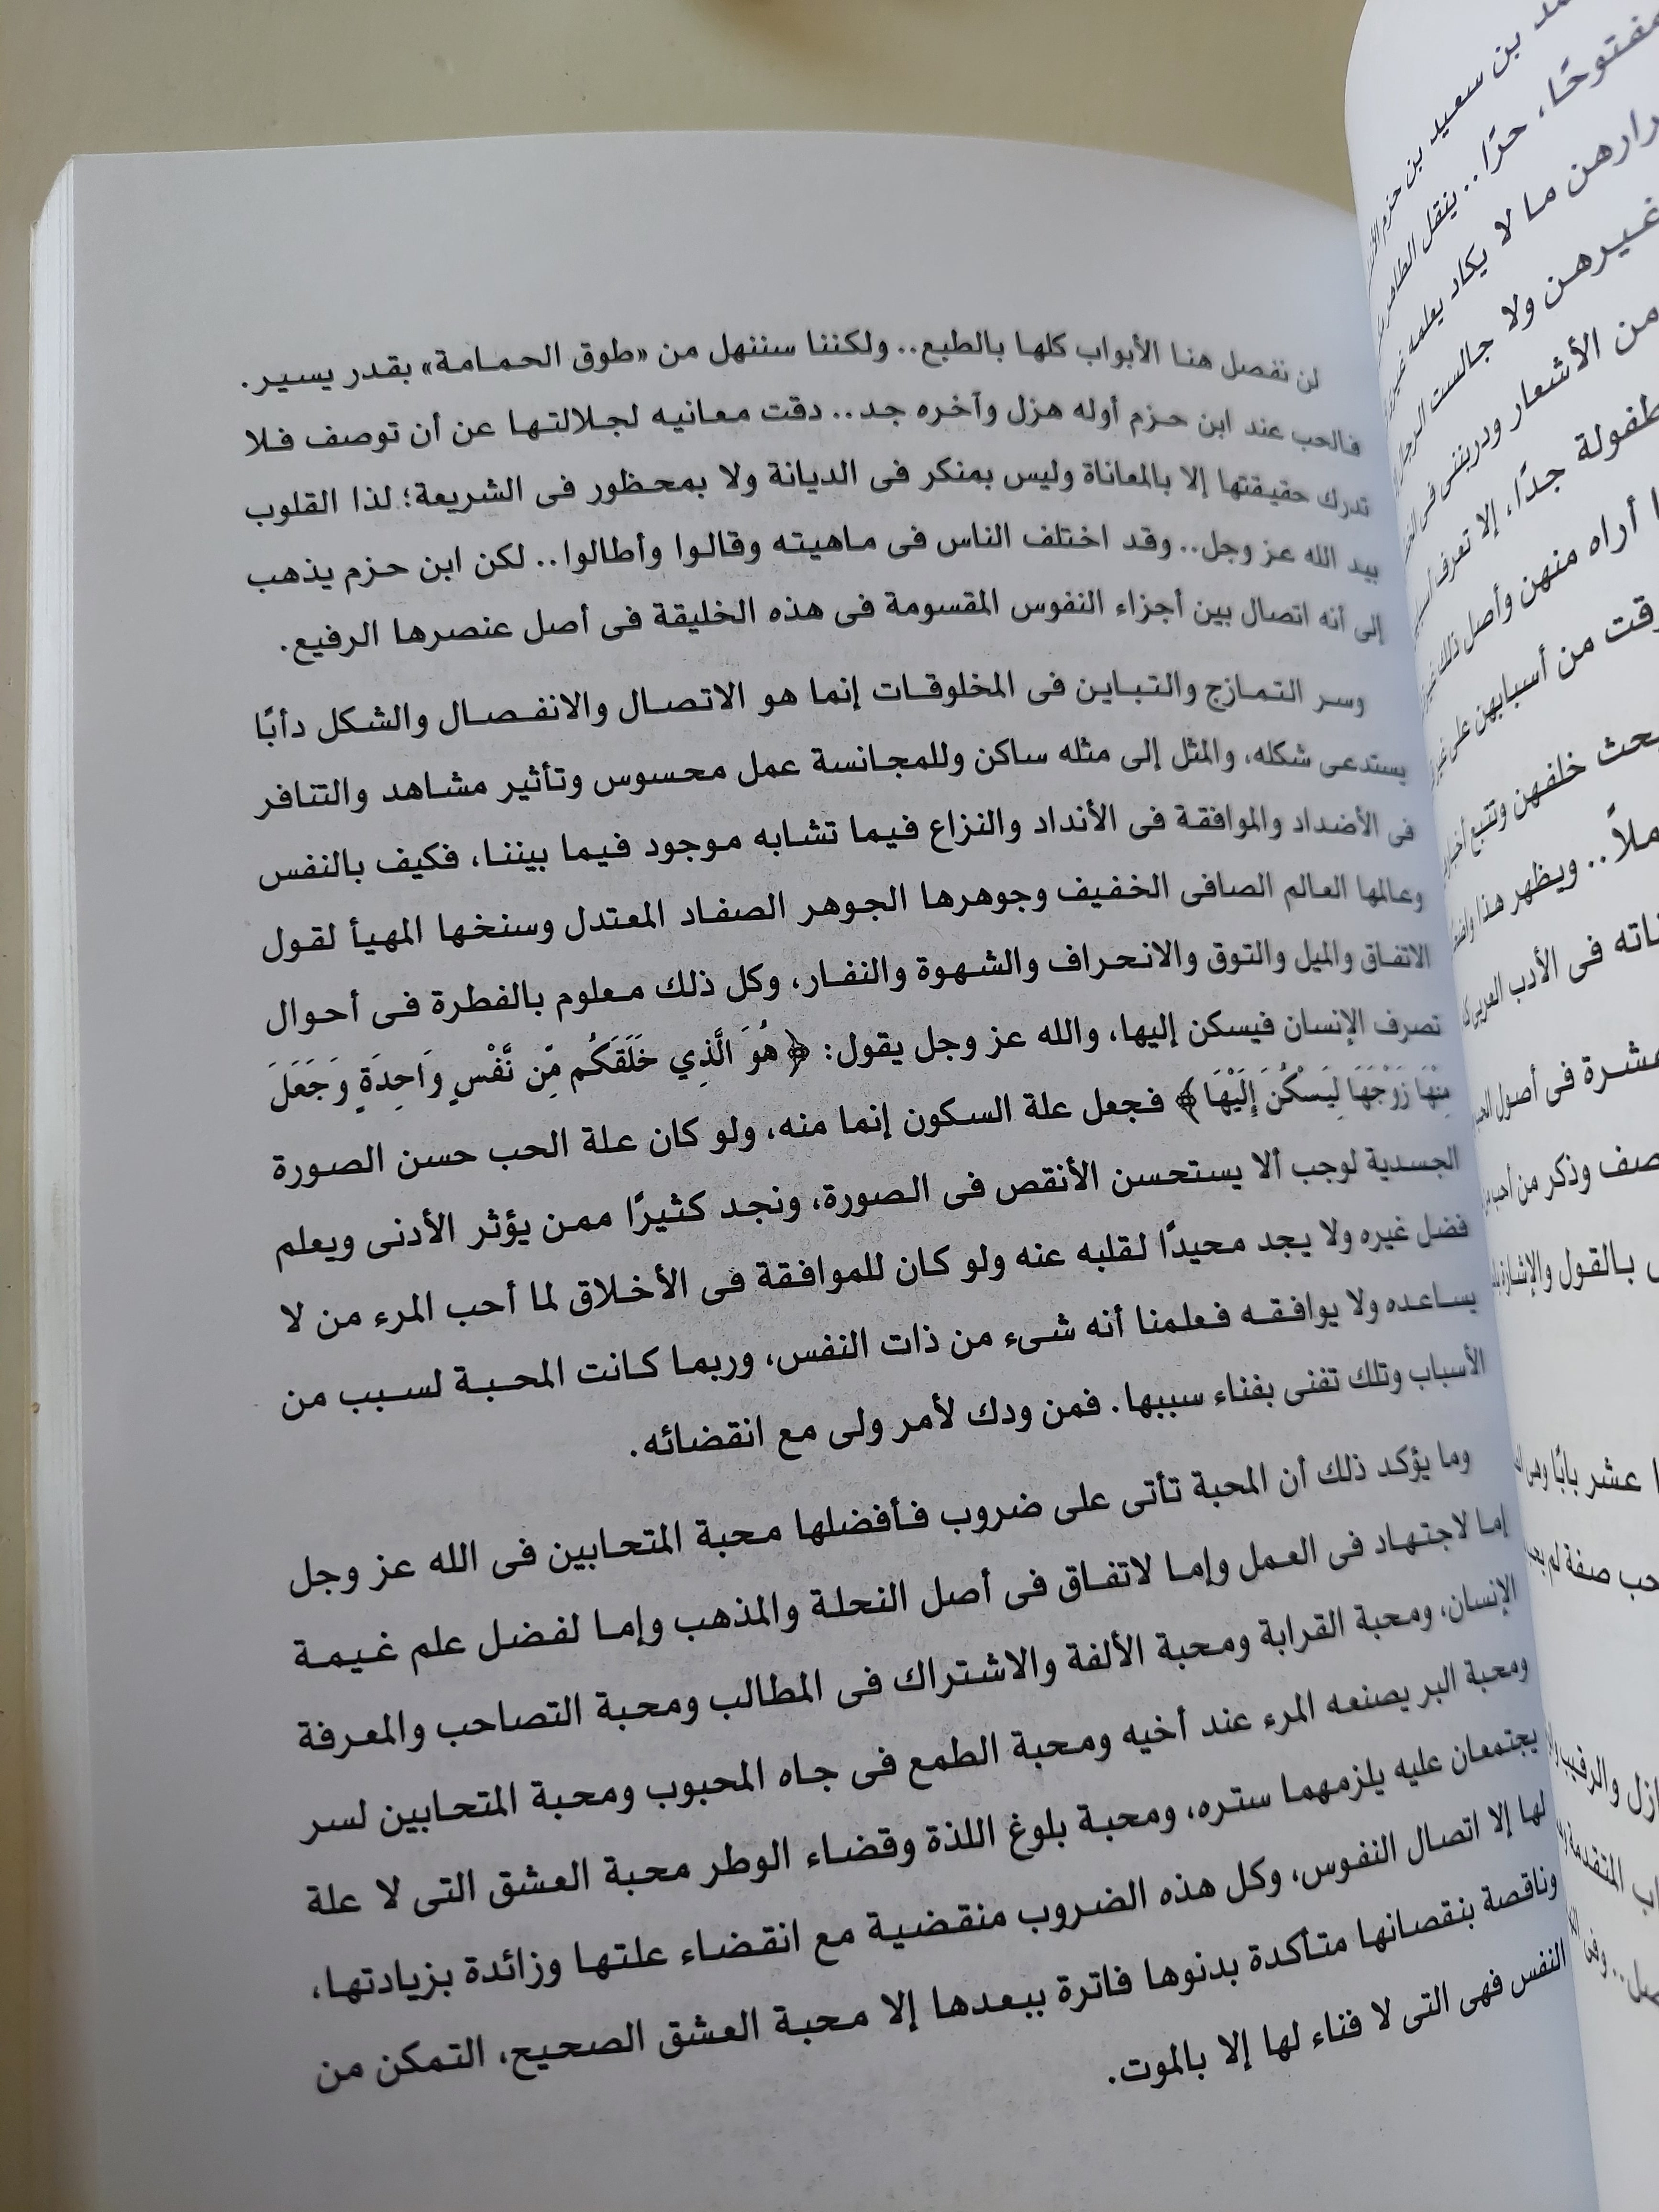 لن نفصل هنا الأبواب كلها بالطبع.. ولكننا سننهل من «طوق الحمامة» بقدر يسير.
فالحب عند ابن حزم أوله هزل وآخره جد.. دقت معانيه لجلالتها عن أن توصف فلا
تدرك حقيقتها إلا بالمعاناة وليس بمنكر فى الديانة ولا بمحظور فى الشريعة؛ لذا القلوب
بيد الله عز وجل.. وقد اختلف الناس فى ماهيته وقالوا وأطالوا.. لكن ابن حزم يذهب
إلى أنه اتصال بين أجزاء النفوس المقسومة فى هذه الخليقة فى أصل عنصرها الرفيع.
وسر التمازج والتباين فى المخلوقات إنما هو الاتصال والانفصال والشكل دأبًا
يستدعى شكله، والمثل إلى مثله ساكن وللمجانسة عمل محسوس وتأثير مشاهد والتنافر
فى الأضداد والموافقة فى الأنداد والنزاع فيما تشابه موجود فيما بيننا، فكيف بالنفس
وعالمها العالم الصافى الخفيف وجوهرها الجوهر الصفاد المعتدل وسنخها المهيأ لقول
الاتفاق والميل والتوق والانحراف والشهوة والنفار، وكل ذلك معلوم بالفطرة فى أحوال
تصرف الإنسان فيسكن إليها، والله عز وجل يقول: ﴿هُوَ الَّذِي خَلَقَكُم مِّن نَّفْسٍ وَاحِدَةٍ وَجَعَلَ
مِنْهَا زَوْجَهَا لِيَسْكُنَ إِلَيْهَا﴾ فجعل علة السكون إنما منه، ولو كان علة الحب حسن الصورة
الجسدية لوجب ألا يستحسن الأنقص فى الصورة، ونجد كثيرًا ممن يؤثر الأدنى ويعلم
فضل غيره ولا يجد محيدًا لقلبه عنه ولو كان للموافقة فى الأخلاق لما أحب المرء من لا
يساعده ولا يوافقه فعلمنا أنه شىء من ذات النفس، وربما كانت المحبة لسبب من
الأسباب وتلك تفنى بفناء سببها. فمن ودك لأمر ولى مع انقضائه.
وما يؤكد ذلك أن المحبة تأتى على ضروب فأفضلها محبة المتحابين فى الله عز وجل
إما لاجتهاد فى العمل وإما لاتفاق فى أصل النحلة والمذهب وإما لفضل علم غيمة
الإنسان، ومحبة القرابة ومحبة الألفة والاشتراك فى المطالب ومحبة التصاحب والمعرفة
ومحبة البر يصنعه المرء عند أخيه ومحبة الطمع فى جاه المحبوب ومحبة المتحابين لسر
يجتمعان عليه يلزمهما ستره، ومحبة بلوغ اللذة وقضاء الوطر محبة العشق التى لا علة
لها إلا اتصال النفوس، وكل هذه الضروب منقضية مع انقضاء علتها وزائدة بزيادتها،
وناقصة بنقصانها متأكدة بدنوها فاترة ببعدها إلا محبة العشق الصحيح، التمكن من
النفس فهى التى لا فناء لها إلا بالموت.
بن سعيد بن حزم
مفتوحًا، حرًا.. ينقل
ما لا يكاد يعلمه
غيرهن ولا جالست
من الأشعار ودربننى فى
جدًا، إلا تعرف
أراه منهن وأصل ذلك
من أسبابهن على
خلفهن وتتبع
ويظهر هذا
فى الأدب العربى
عشرة فى أصول
وذكر من أحب
بالقول والإشارة
عشر بابًا وهى
صفة لم
والرقيب
المتقدمة